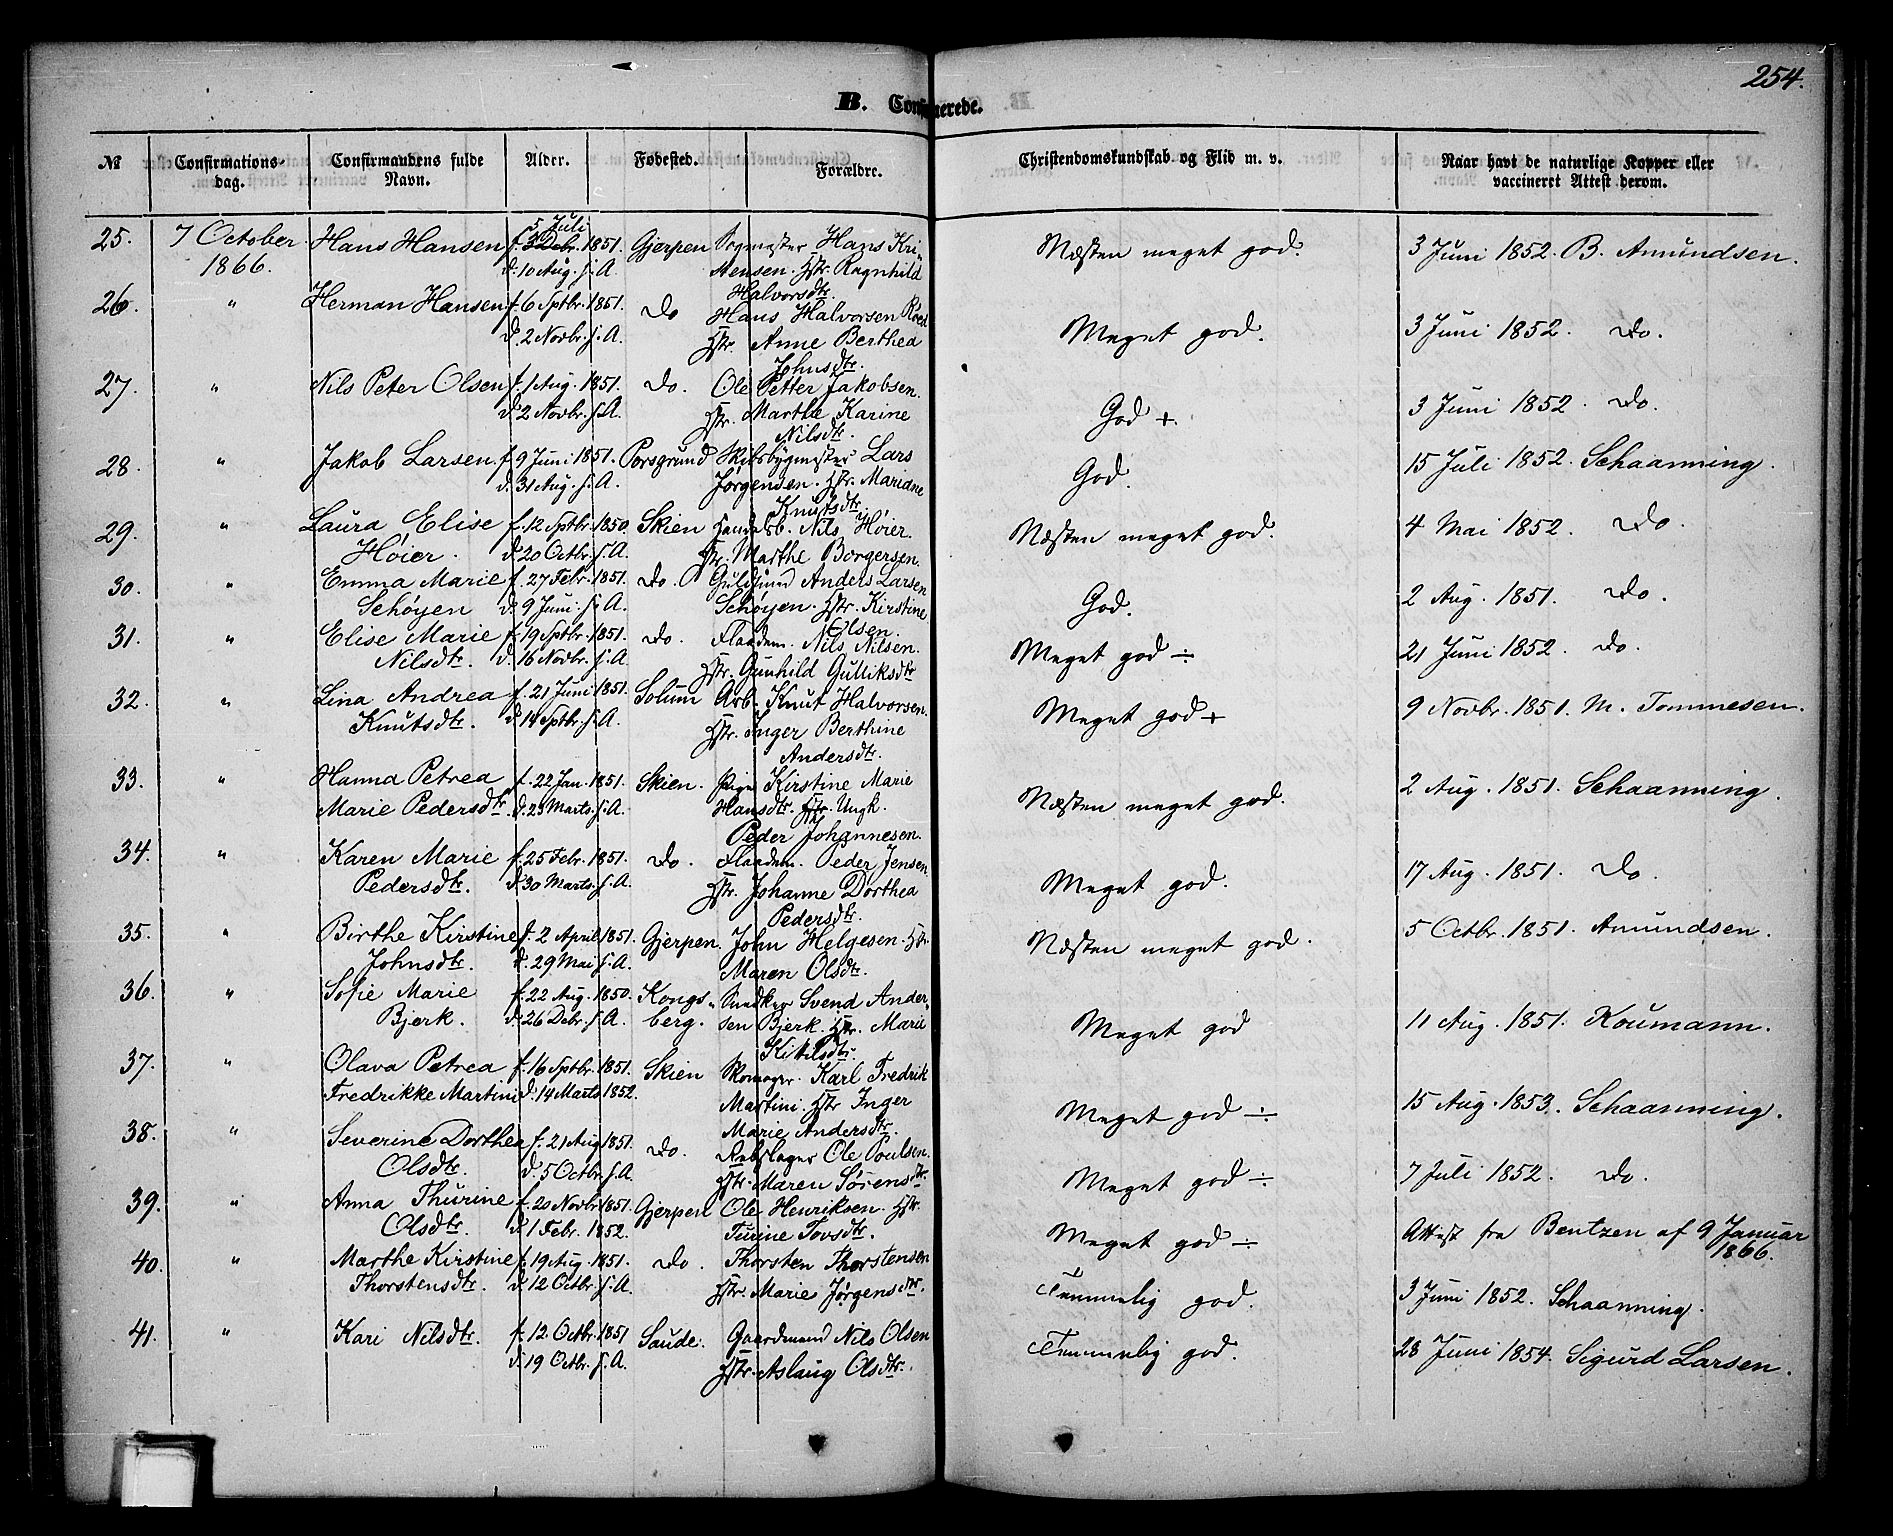 254.
B. Confirmerede.
№ Confirmations- dag. Confirmandens fulde Navn. Alder. Fødested. Forældre. Christendomskundskab og Flid m. v. Naar havt de naturlige Kopper eller vaccineret Attest derom.
25. 7 October Hans Hansen f. 5 Juli 1851. Gjerpen Hans Kri- Næsten meget god. 3 Juni 1852. B. Amundsen.
1866. d. 10 Aug. s. A. stensen. Hstr. Ragnhild
Halvorsdtr.
26. " Herman Hansen f. 6 Sptbr. 1851. Do Hans Halvorsen Meget god. 3 Juni 1852. Do.
d. 2 Novbr. s. A. Hstr. Anne Berthea
Johnsdtr.
27. " Nils Peter Olsen f. 1 Aug. 1851. Do. Ole Petter Jakobsen. God +. 3 Juni 1852. Do.
d. 2 Novbr. s. A. Hstr. Marthe Karine
Nilsdtr.
28 " Jakob Larsen. f. 9 Juni 1851. Porsgrund Skibsbygmester Lars God. 15 Juli 1852. Schaanning.
d. 31 Aug. s. A. Jørgensen. Hstr. Mariane
Knutsdtr.
29. " Laura Elise f. 12 Sptbr. 1850. Skien Nils Høier. Næsten meget god. 4 Mai 1852. Do.
Høier. d. 20 Octbr. s. A. Hstr. Marthe Borgersen.
30. " Emma Marie f. 27 Febr. 1851. Do. Guldsmed Anders Larsen God. 2 Aug. 1851. Do.
Schøyen d. 9 Juni s. A. Schøyen. Hstr. Kirstine
Olsen.
31. " Elise Marie f. 19 Sptbr. 1851. Do. Flaadem. Nils Nilsen. Meget god ÷ 21 Juni 1852. Do.
Nilsdtr. d. 16 Novbr. s. A. Hstr. Gunhild Gulliksdtr
32. " Lina Andrea f. 21 Juni 1851. Solum Arb. Knut Halvorsen. Meget god + 9 Novbr. 1851. M. Tommesen.
Knutsdtr. d. 14 Sptbr. s. A. Hstr. Inger Berthine
Andersdtr.
33. " Hanna Petrea f. 22 Jan. 1851. Skien. Pige Kirstine Marie Næsten meget god. 2 Aug. 1851. Schaanning.
Marie Pedersdtr. d. 23 Marts s. A. Hansdtr. Ungk.
Peder Johannesen.
34. " Karen Marie f. 25 Febr. 1851. Do. Flaadem. Peder Jensen Meget god. 17 Aug. 1851. Do.
Pedersdtr. d. 30 Marts s. A. Hstr. Johanne Dorthea
Pedersdtr.
35. " Birthe Kirstine f. 2 April 1851. Gjerpen. John Helgesen. Hstr. Næsten meget god. 5 Octbr. 1851. Amundsen.
Johnsdtr. d. 29 Mai s. A. Maren Olsdtr.
36. " Sofie Marie f. 22 Aug. 1850. Kongs- Snedker Svend Ander- Meget god 11 Aug. 1851. Koumann.
Bjerk. d. 26 Debr. s. A. berg. sen Bjerk. Hstr. Marie
Kitilsdtr.
37. " Olava Petrea f. 16 Sptbr. 1851. Skien Skomager Karl Fredrik Meget god ÷ 15 Aug. 1853. Schaanning.
Fredrikke Martini d. 14 Marts 1852. Martini Hstr Inger
Marie Andersdtr.
38. " Severine Dorthea f. 21 Aug 1851. Do. Rebslager Ole Poulsen. Meget god ÷ 7 Juli 1852. Do.
Olsdtr. d. 5 Octbr. s. A. Hstr. Maren Sørensdtr.
39. " Anna Thurine f. 20 Novbr 1851. Gjerpen Ole Henriksen. Hstr. Meget god ÷ Attest fra Bentzen af 9 Januar
Olsdtr. d. 1 Febr. 1852. Turine Tovsdtr. 1866.
40. " Marthe Kirstine f. 19 Aug. 1851. Do. Thorsten Thorstensen Temmelig god. 3 Juni 1852. Schaanning.
Thorstensdtr. d. 12 Octbr. s. A. Hstr. Marie Jørgensdtr.
41. " Kari Nilsdtr. f. 12 Octbr. 1851 Saude. Gaardmand Nils Olsen Temmelig god. 28 Juni 1854. Sigurd Larsen.
d. 19 Octbr. s. A. Hstr. Aslaug Olsdtr.